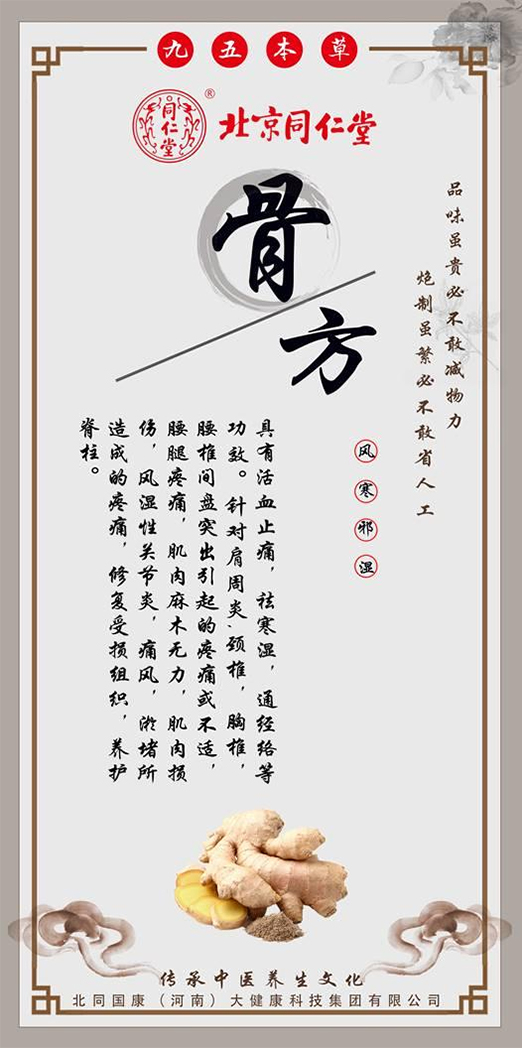 九五本草
同仁堂
®
北京同仁堂
骨方
品味虽贵必不敢减物力
炮制虽繁必不敢省人工
风寒邪湿
具有活血止痛，祛寒湿，通经络等
功效。针对肩周炎、颈椎，胸椎，
腰椎间盘突出引起的疼痛或不适，
腰腿疼痛，肌肉麻木无力，肌肉损
伤，风湿性关节炎，痛风，淤堵所
造成的疼痛，修复受损组织，养护
脊柱。
传承中医养生文化
北同国康（河南）大健康科技集团有限公司